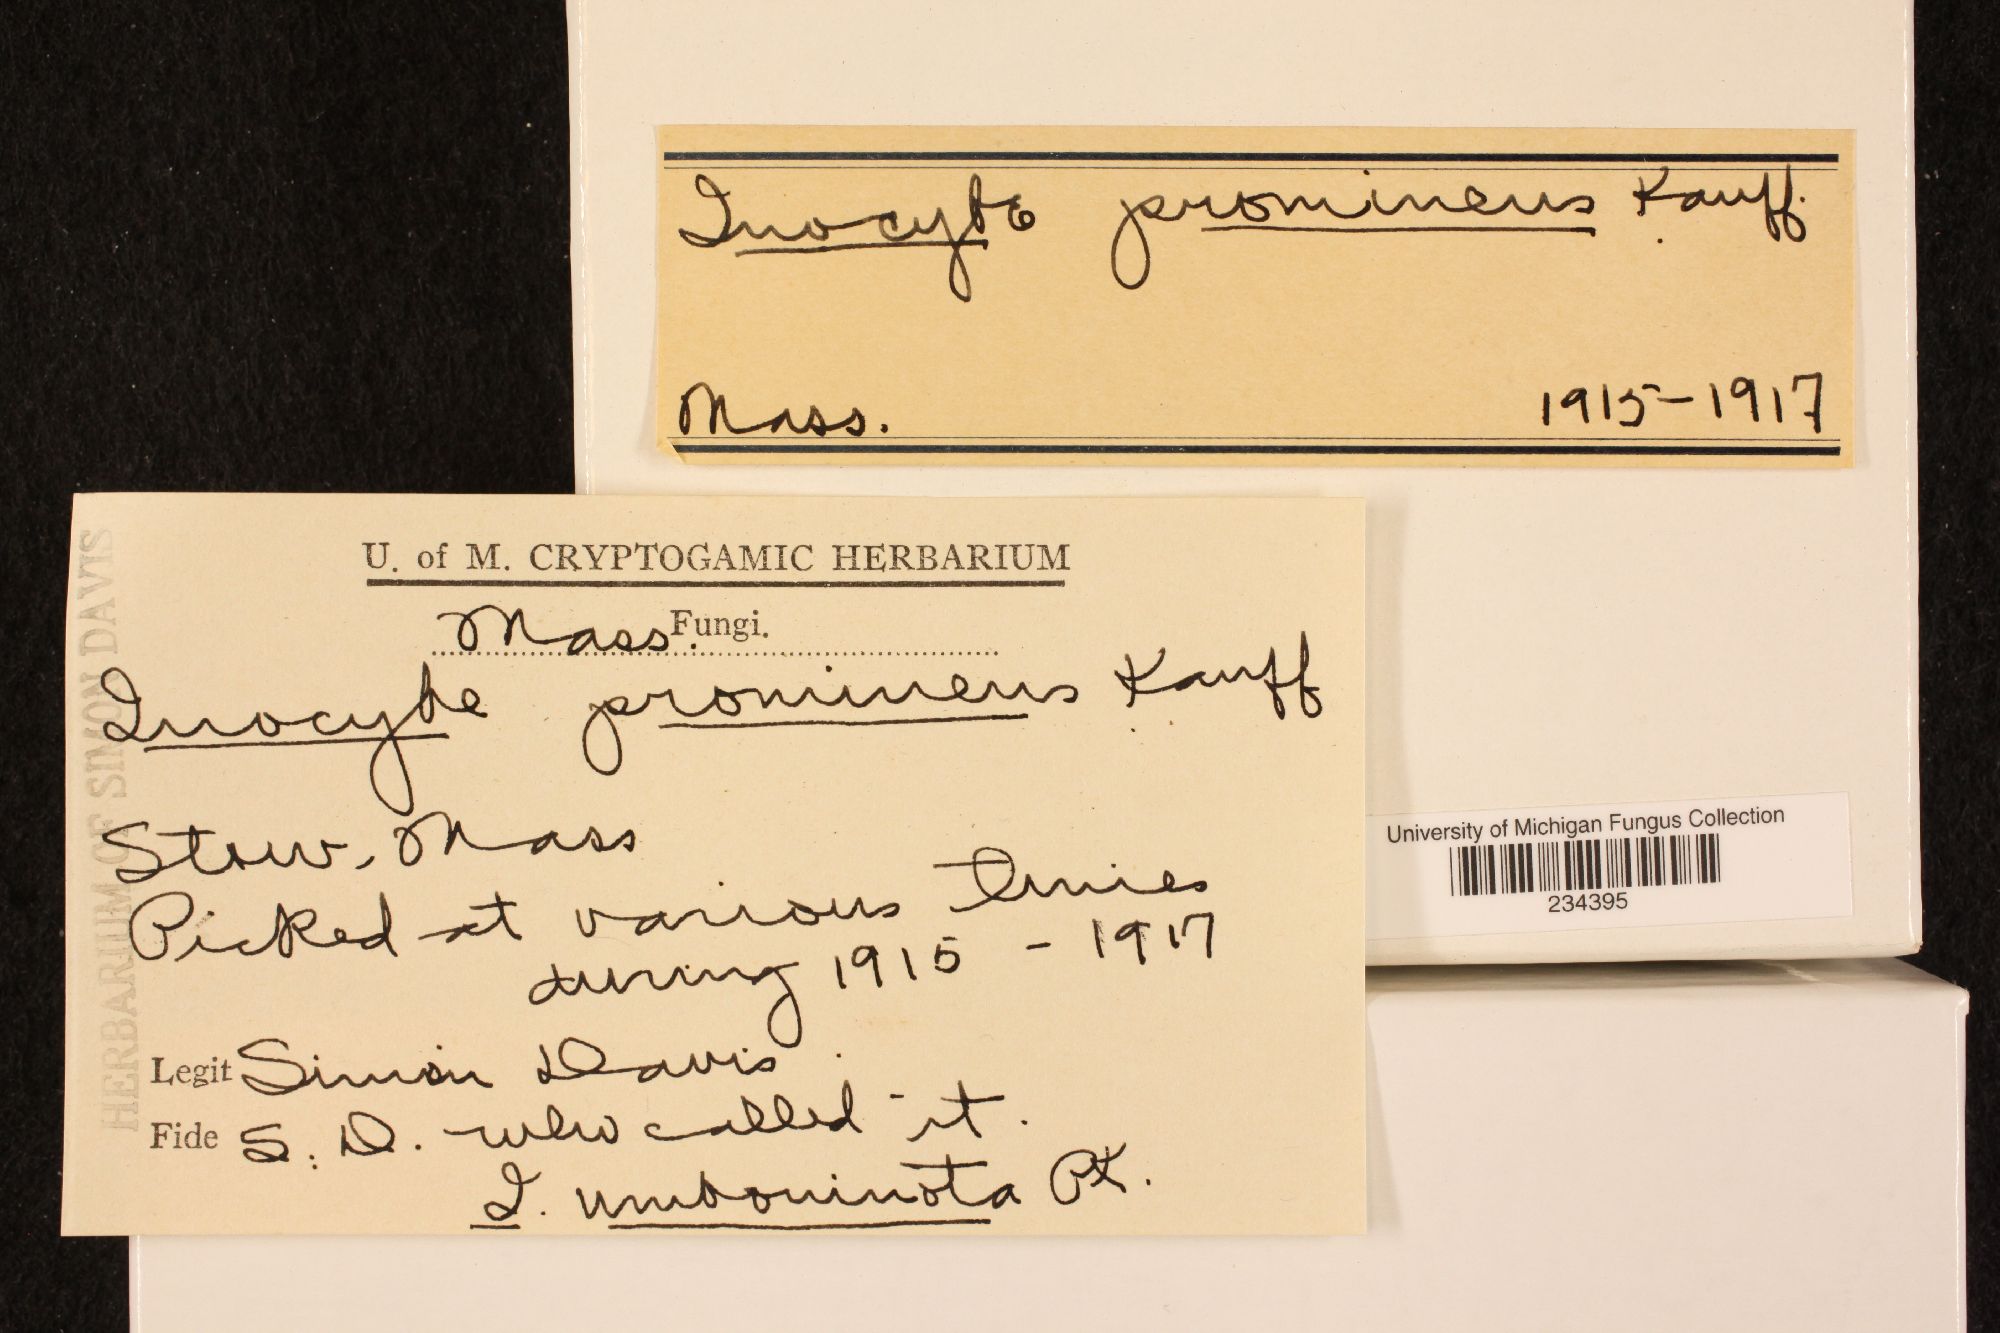 Inocybe prominens Kauff.
Mass. 1915-1917
U. of M. CRYPTOGAMIC HERBARIUM
Mass. Fungi.
Inocybe prominens Kauff
Stow, Mass
Picked at various times
during 1915 - 1917
Legit Simon Davis
Fide S. D. who called it.
I. umboninota Pk.
HERBARIUM OF SIMON DAVIS
University of Michigan Fungus Collection
234395